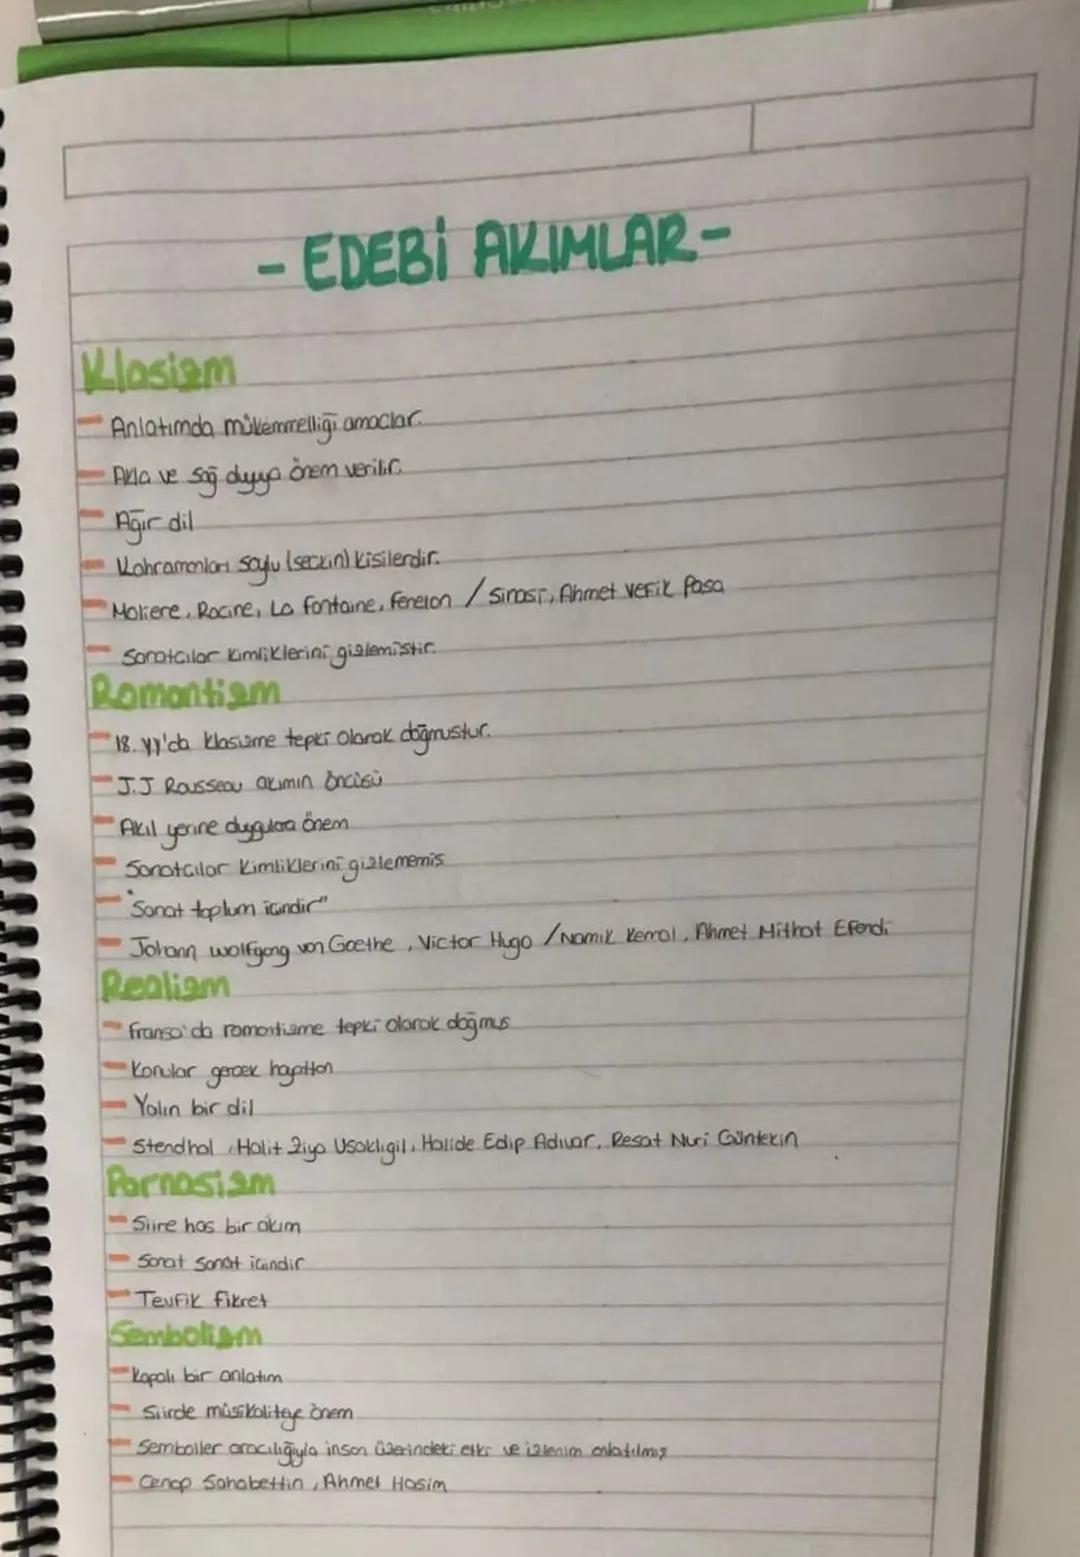 - EDEBİ AKIMLAR -
Klasizm
- Anlatımda mükemmelliği amaclar.
- Akla ve sağ duyuya önem verilir.
- Ağır dil
- Kahramanları soylu (seckin) kisilerdir.
- Moliere, Racine, La fontaine, fenelon / Sinasi, Ahmet Vefik Pasa
- Sanatcılar kimliklerini gizlemistir.
Romantizm
- 18. yy'da klasizme tepki olarak doğmustur.
- J.J Rousseau akımın öncüsü
- Akıl yerine duygulara önem
- Sanatcılar kimliklerini gizlememis
- "Sanat toplum icindir"
- Johann wolfgang von Goethe, Victor Hugo / Namık Kemal, Ahmet Mithat Efendi
Realizm
- fransa'da romantizme tepki olarak doğmus
- Konular gercek hayattan
- Yalın bir dil
- Stendhal, Halit Ziya Usaklıgil, Halide Edip Adıvar, Resat Nuri Güntekin
Parnasizm
- Siire has bir akım
- Sanat sanat icindir
- Tevfik fikret
Sembolizm
- Kapalı bir anlatım
- Siirde müsikaliteye önem
- Semboller aracılığıyla insan üzerindeki etki ve izlenim anlatılmış
- Cenap Sahabettin, Ahmet Hasim